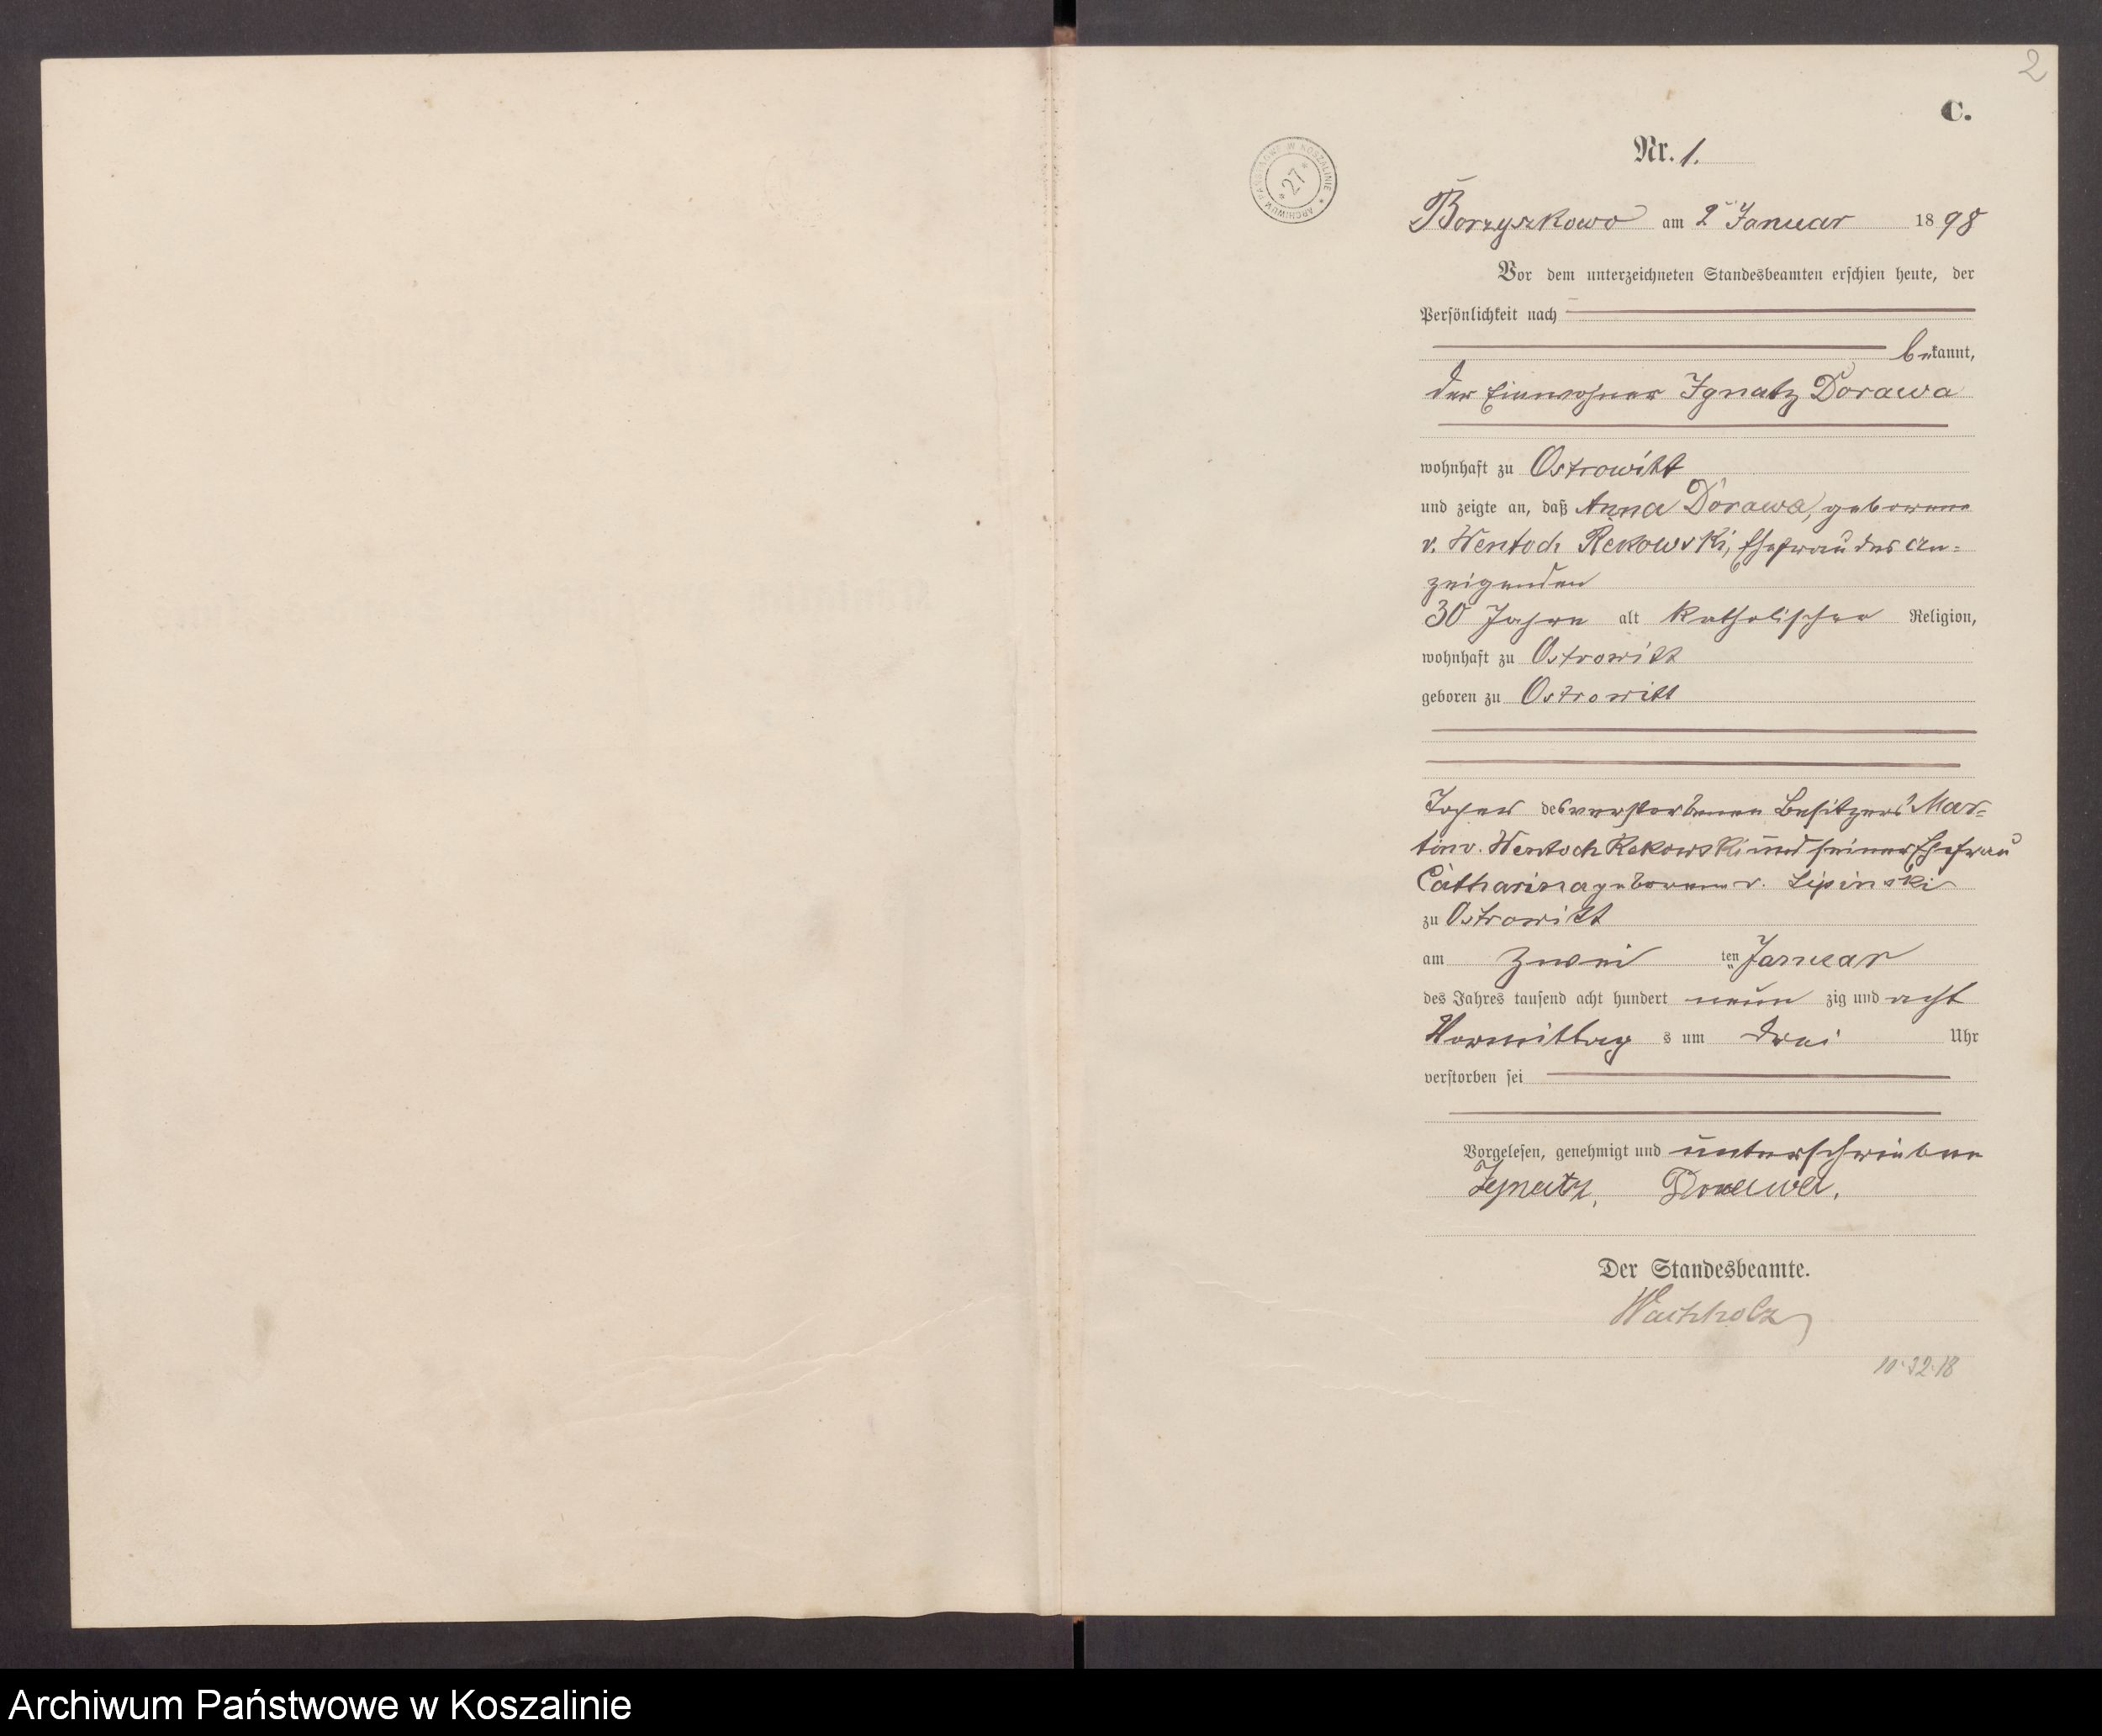 2
C.
Nr. 1.
ARCHIWUM PAŃSTWOWE W KOSZALINIE * 27 *
Borzyszkowo am 2 Januar 1898
Vor dem unterzeichneten Standesbeamten erschien heute, der
Persönlichkeit nach
bekannt,
der Einwohner Ignatz Dorawa
wohnhaft zu Ostrowitt
und zeigte an, daß Anna Dorawa, geborene
v. Wentoch Rekowski, Ehefrau des An=
zeigenden
30 Jahre alt katholischer Religion,
wohnhaft zu Ostrowitt
geboren zu Ostrowitt
Tochter des verstorbenen Besitzers Mar=
tin v. Wentoch Rekowski und seiner Ehefrau
Catharina geborene v. Lipinski
zu Ostrowitt
am zwei ten Januar
des Jahres tausend acht hundert neun zig und acht
Vormittag s um drei Uhr
verstorben sei
Vorgelesen, genehmigt und unterschrieben
Ignatz, Dorawa.
Der Standesbeamte.
Wachholz
Archiwum Państwowe w Koszalinie